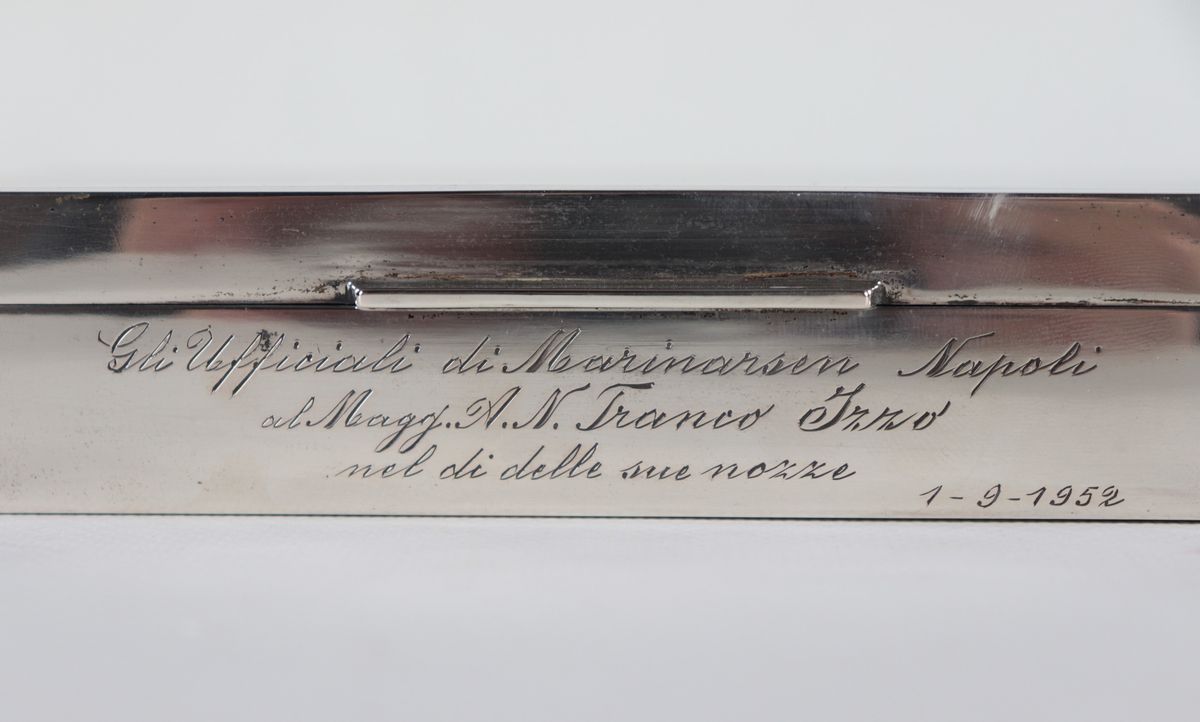 Gli Ufficiali di Marinarsen Napoli
al Magg. A.N. Franco Izzo
nel di delle sue nozze
1-9-1952